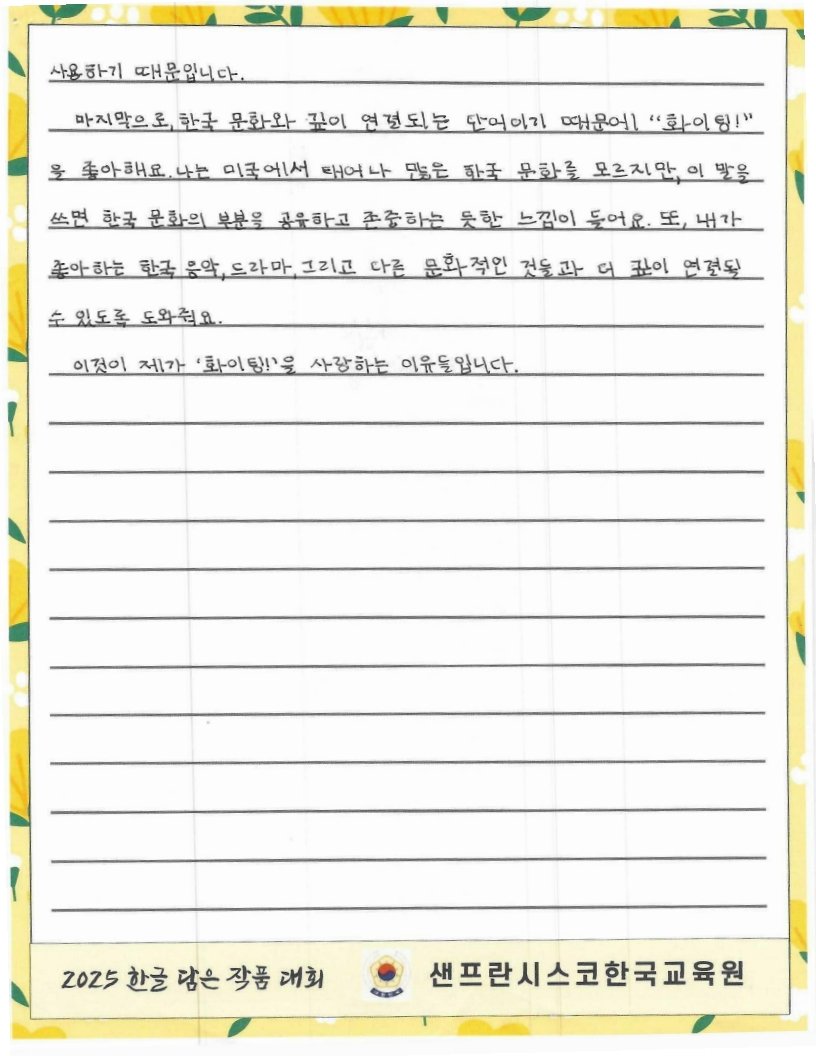 사용하기 때문입니다.
마지막으로, 한국 문화와 깊이 연결되는 단어이기 때문에 "화이팅!"
을 좋아해요. 나는 미국에서 태어나 많은 한국 문화를 모르지만, 이 말을
쓰면 한국 문화의 부분을 공유하고 존중하는 듯한 느낌이 들어요. 또, 내가
좋아하는 한국 음악, 드라마, 그리고 다른 문화적인 것들과 더 깊이 연결될
수 있도록 도와줘요.
이것이 제가 '화이팅!'을 사랑하는 이유들입니다.
2025 한글 담은 작품 대회
샌프란시스코한국교육원